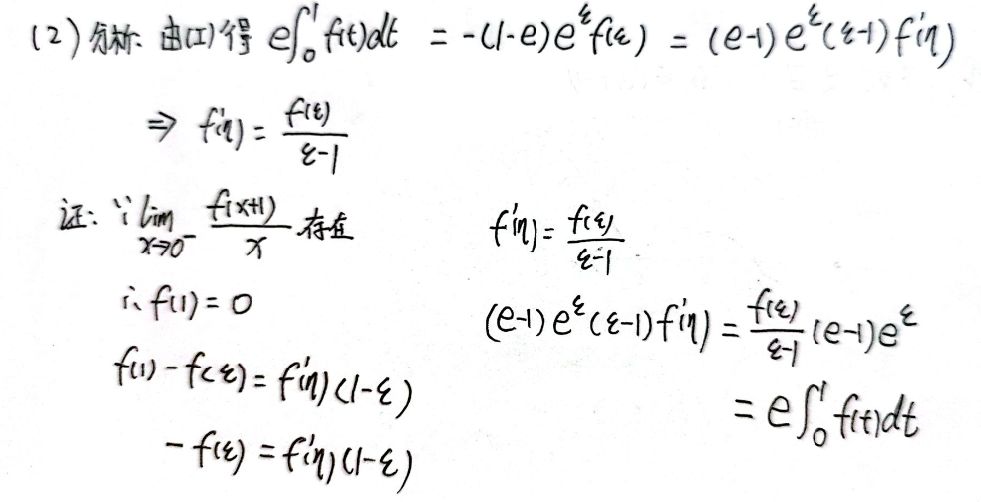 (2) 分析: 由(I)得 e∫₀¹f(t)dt = -(1-e)e^ξ f(ξ) = (e-1)e^ξ(ξ-1)f'(η)
⇒ f'(η) = f(ξ)/(ξ-1)
证: ∵ lim_{x→0⁻} f(x+1)/x 存在
∴ f(1) = 0
f(1) - f(ξ) = f'(η)(1-ξ)
-f(ξ) = f'(η)(1-ξ)
f'(η) = f(ξ)/(ξ-1)
(e-1)e^ξ(ξ-1)f'(η) = f(ξ)/(ξ-1) (e-1)e^ξ
= e∫₀¹f(t)dt